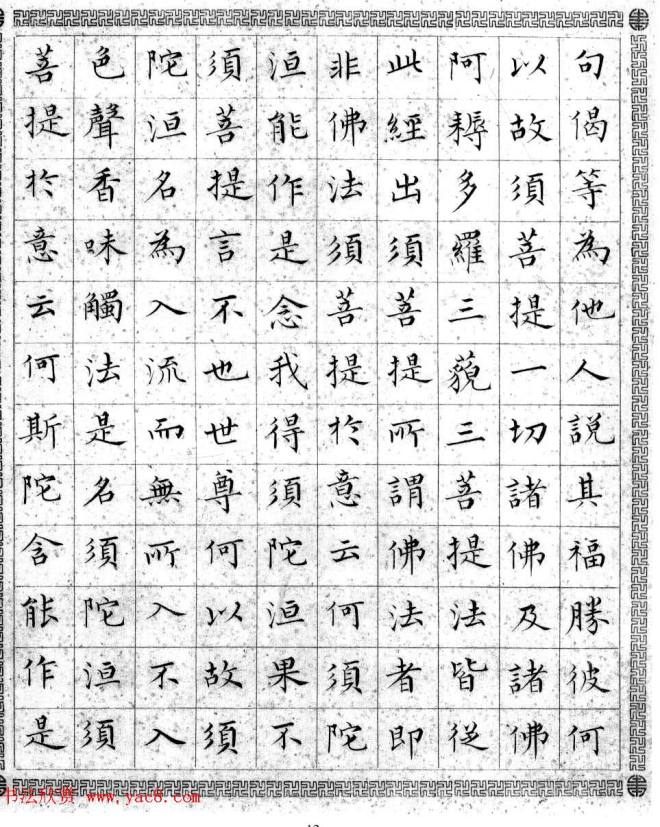 句偈等為他人說其福勝彼何
以故須菩提一切諸佛及諸佛
阿耨多羅三藐三菩提法皆從
此經出須菩提所謂佛法者即
非佛法須菩提於意云何須陀
洹能作是念我得須陀洹果不
須菩提言不也世尊何以故須
陀洹名為入流而無所入不入
色聲香味觸法是名須陀洹須
菩提於意云何斯陀含能作是
书法欣赏 www.yac8.com
12